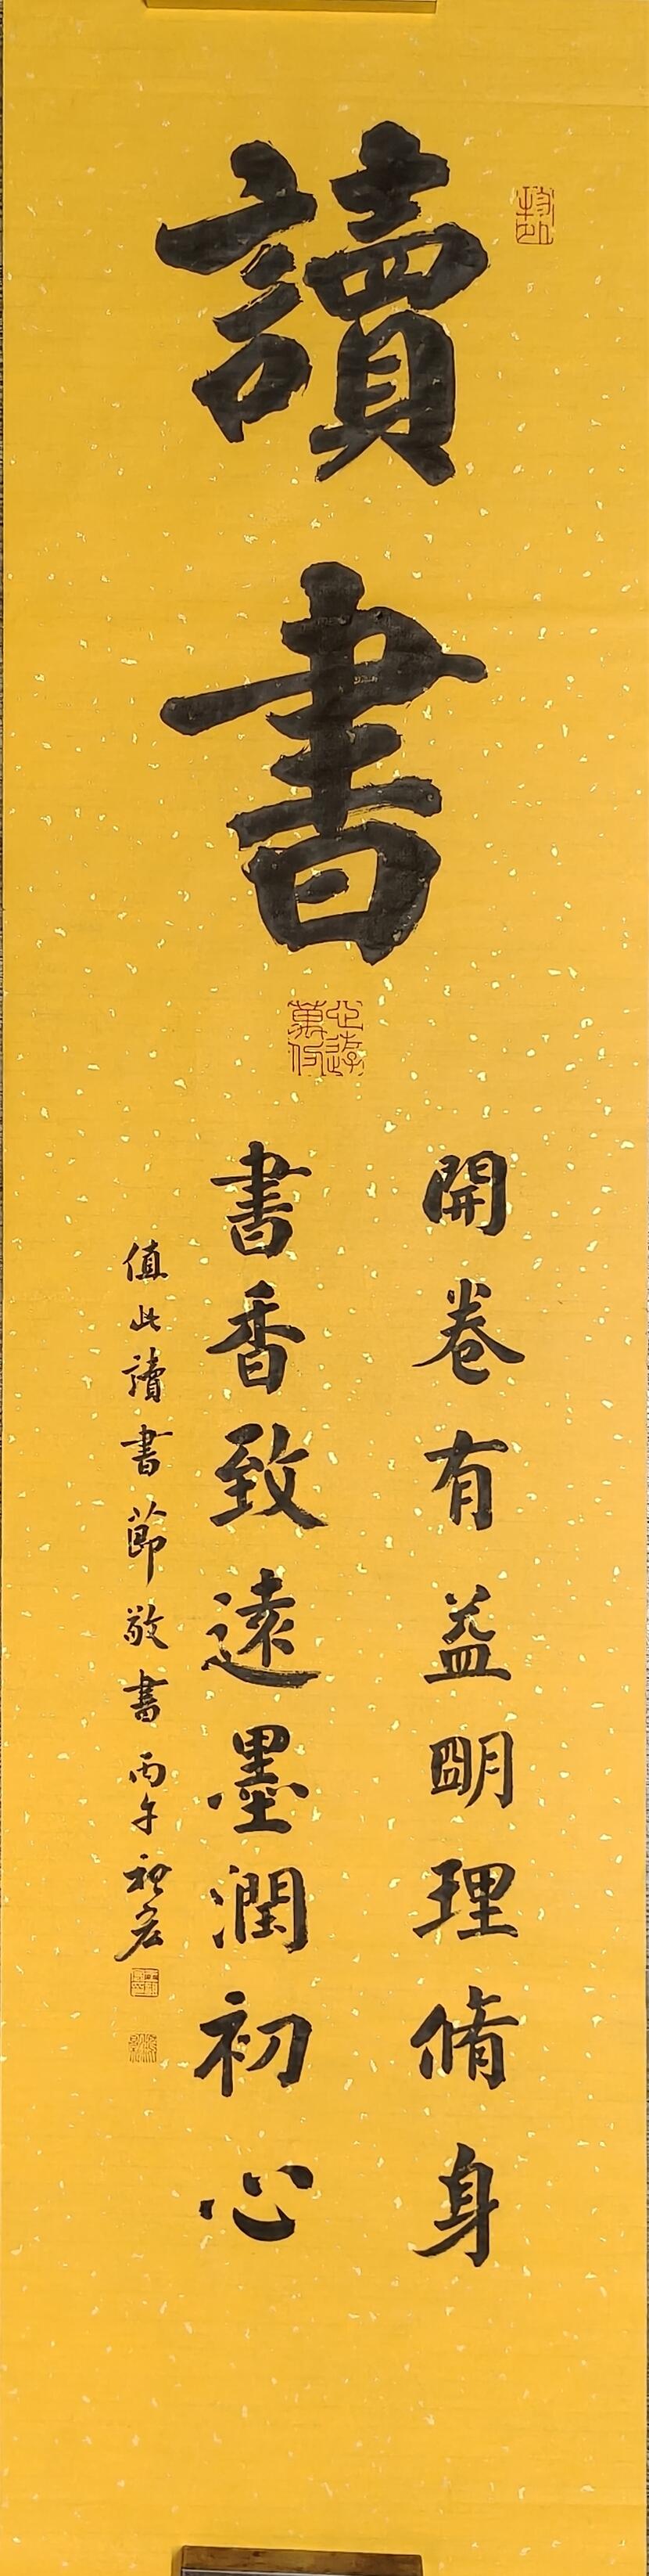 讀書
開卷有益明理脩身
書香致遠墨潤初心
值此讀書節敬書丙午